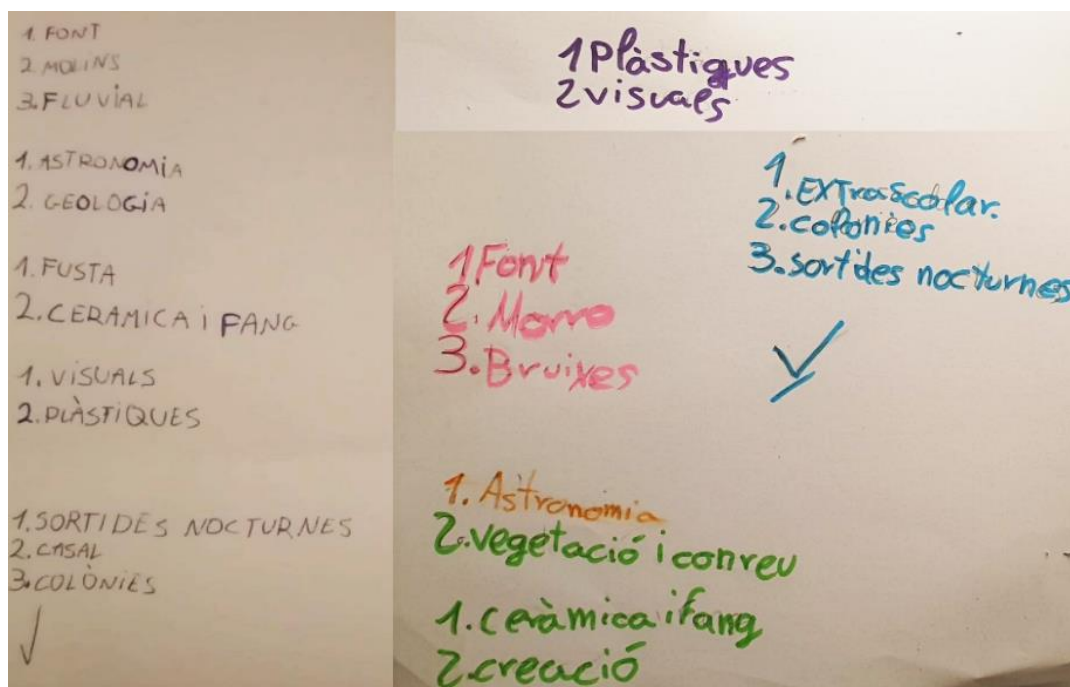 1. FONT
2. MOLINS
3. FLUVIAL
1. ASTRONOMIA
2. GEOLOGIA
1. FUSTA
2. CERAMICA i FANG
1. VISUALS
2. PLÀSTIQUES
1. SORTIDES NOCTURNES
2. CASAL
3. COLÒNIES
1 Plàstiques
2 visuals
1. EXTrascolar.
2. colonies
3. sortides nocturnes
1 Font
2. Morro
3. Bruixes
1. Astronomia
2. vegetació i conreu
1. ceràmica i fang
2. creació